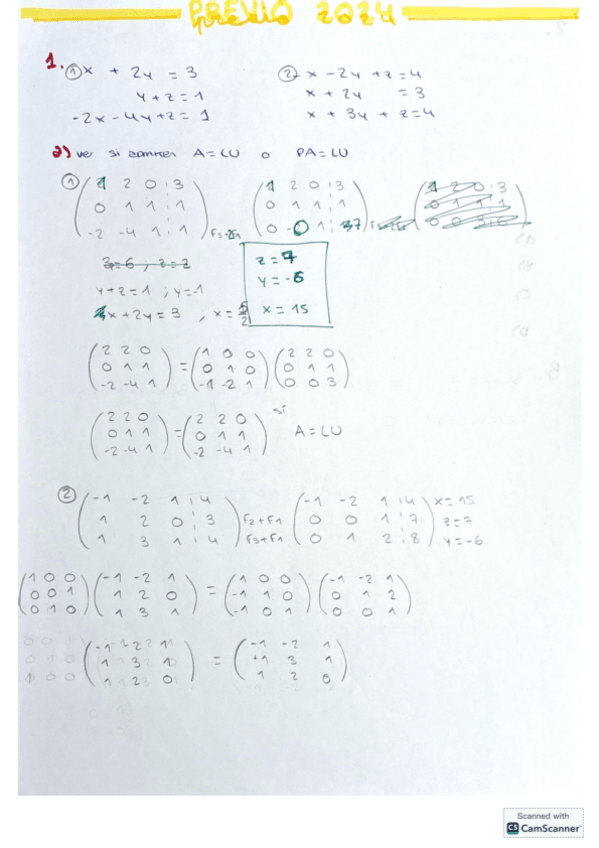 PREVIO 2024
1. ① x + 2y = 3
y + z = 1
-2x - 4y + z = 1
② x - 2y + z = 4
x + 2y = 3
x + 3y + z = 4
a) ver si A = LU o PA = LU
① (1 2 0 3
0 1 1 1
-2 -4 1 1)
(1 2 0 3
0 1 1 1
0 0 1 7)
z = 7
y = -6
x = 15
y + z = 1 ; y = 1
x + 2y = 3 , x =
(2 2 0
0 1 1
-2 -4 1) = (1 0 0
0 1 0
-1 -2 1) (2 2 0
0 1 1
0 0 3)
(2 2 0
0 1 1
-2 -4 1) = (2 2 0
0 1 1
-2 -4 1) sí A = LU
② (-1 -2 1 4
1 2 0 3
1 3 1 4) F2+F1
F3+F1
(-1 -2 1 4
0 0 1 7
0 1 2 8)
x = 15
z = 7
y = -6
(1 0 0
0 0 1
0 1 0) (-1 -2 1
1 2 0
1 3 1) = (1 0 0
-1 1 0
-1 0 1) (-1 -2 1
0 1 2
0 0 1)
(-1 -2 1
1 3 1
1 2 0) = (-1 -2 1
+1 3 1
1 2 0)
Scanned with
CS CamScanner